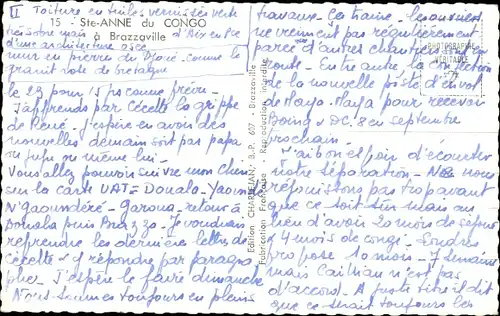 II Toiture en tuiles vernissées verte
15 - Ste-ANNE du CONGO
à Brazzaville
très sobre mais d'Aix en Pce
d'une architecture osée
mur en pierre du Djoué comme le
granit rose de bretagne
le 23 pour 15 jrs comme prévu.
J'apprends par Cécette la grippe
de René. J'espère en avoir des
nouvelles demain soit par papa
ou lui même.
Vous allez pouvoir suivre mon chemin
sur la carte UAT = Douala - Yaoundé
N'gaoundéré - Garoua - retour à
Douala puis Brazza. Je voudrais
reprendre les dernières lettres de
Cécette & y répondre par paragra
phe. J'espère le faire dimanche
Nous sommes toujours en pleins
travaux. Certains. Ils
ne viennent pas régulièrement
parce d'autres chantiers
route. Entre autre la réfection
de la nouvelle piste d'envol
de Maya-Maya pour recevoir
Boeing & DC.8 en septembre
prochain.
J'ai bon espoir d'écourter
notre séparation. Ne nous
réjouissons pas trop avant
que ce soit sûr mais au
lieu d'avoir 20 mois de séjour
& 4 mois de congé. Londres
propose 10 mois - 7 semaines
mais n'est pas
d'accord. A juste titre il dit
que ce serait toujours les
PHOTOGRAPHIE
VÉRITABLE
Edition - B.P. 607 - Brazzaville
Fabrication Française - Reproduction interdite